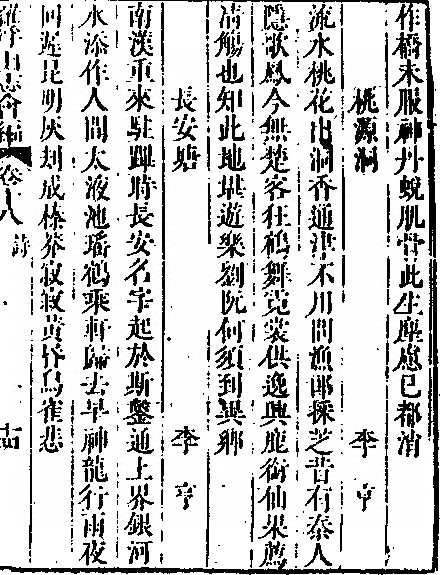 作橋未服神丹蛻肌骨此生塵慮已都消
桃源洞　李亨
流水桃花出洞香通津不用問漁郎採芝昔有秦人
隱歌鳳今無楚客狂鶴舞霓裳供逸興鹿銜仙果薦
清觴也知此地堪遊樂劉阮何須到異鄉
長安塘　李亨
南漢重來駐蹕時長安名字起於斯鑿通上界銀河
水添作人間太液池瑤鶴乘軒歸去早神龍行雨夜
回遲昆明灰刼成榛莽寂寂黃昏鳥雀悲
羅浮山志會編　卷十八　詩　古